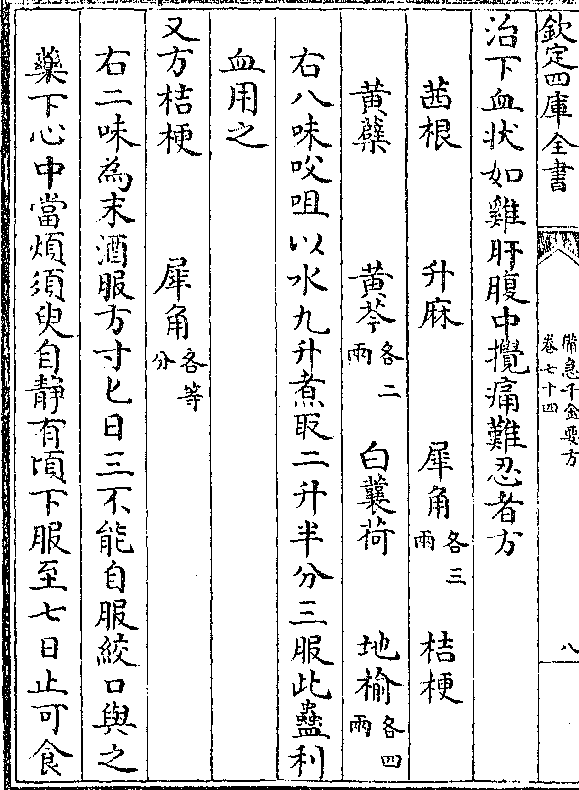 欽定四庫全書
備急千金要方
卷七十四
八
治下血状如雞肝腹中攪痛難忍者方
茜根 升麻 犀角各三兩 桔梗
黄蘗 黄芩各二兩 白蘘荷 地榆各四兩
右八味㕮咀以水九升煮取二升半分三服此蠱利
血用之
又方桔梗 犀角各等分
右二味為末酒服方寸匕日三不能自服絞口與之
藥下心中當煩須臾自静有頃下服至七日止可食